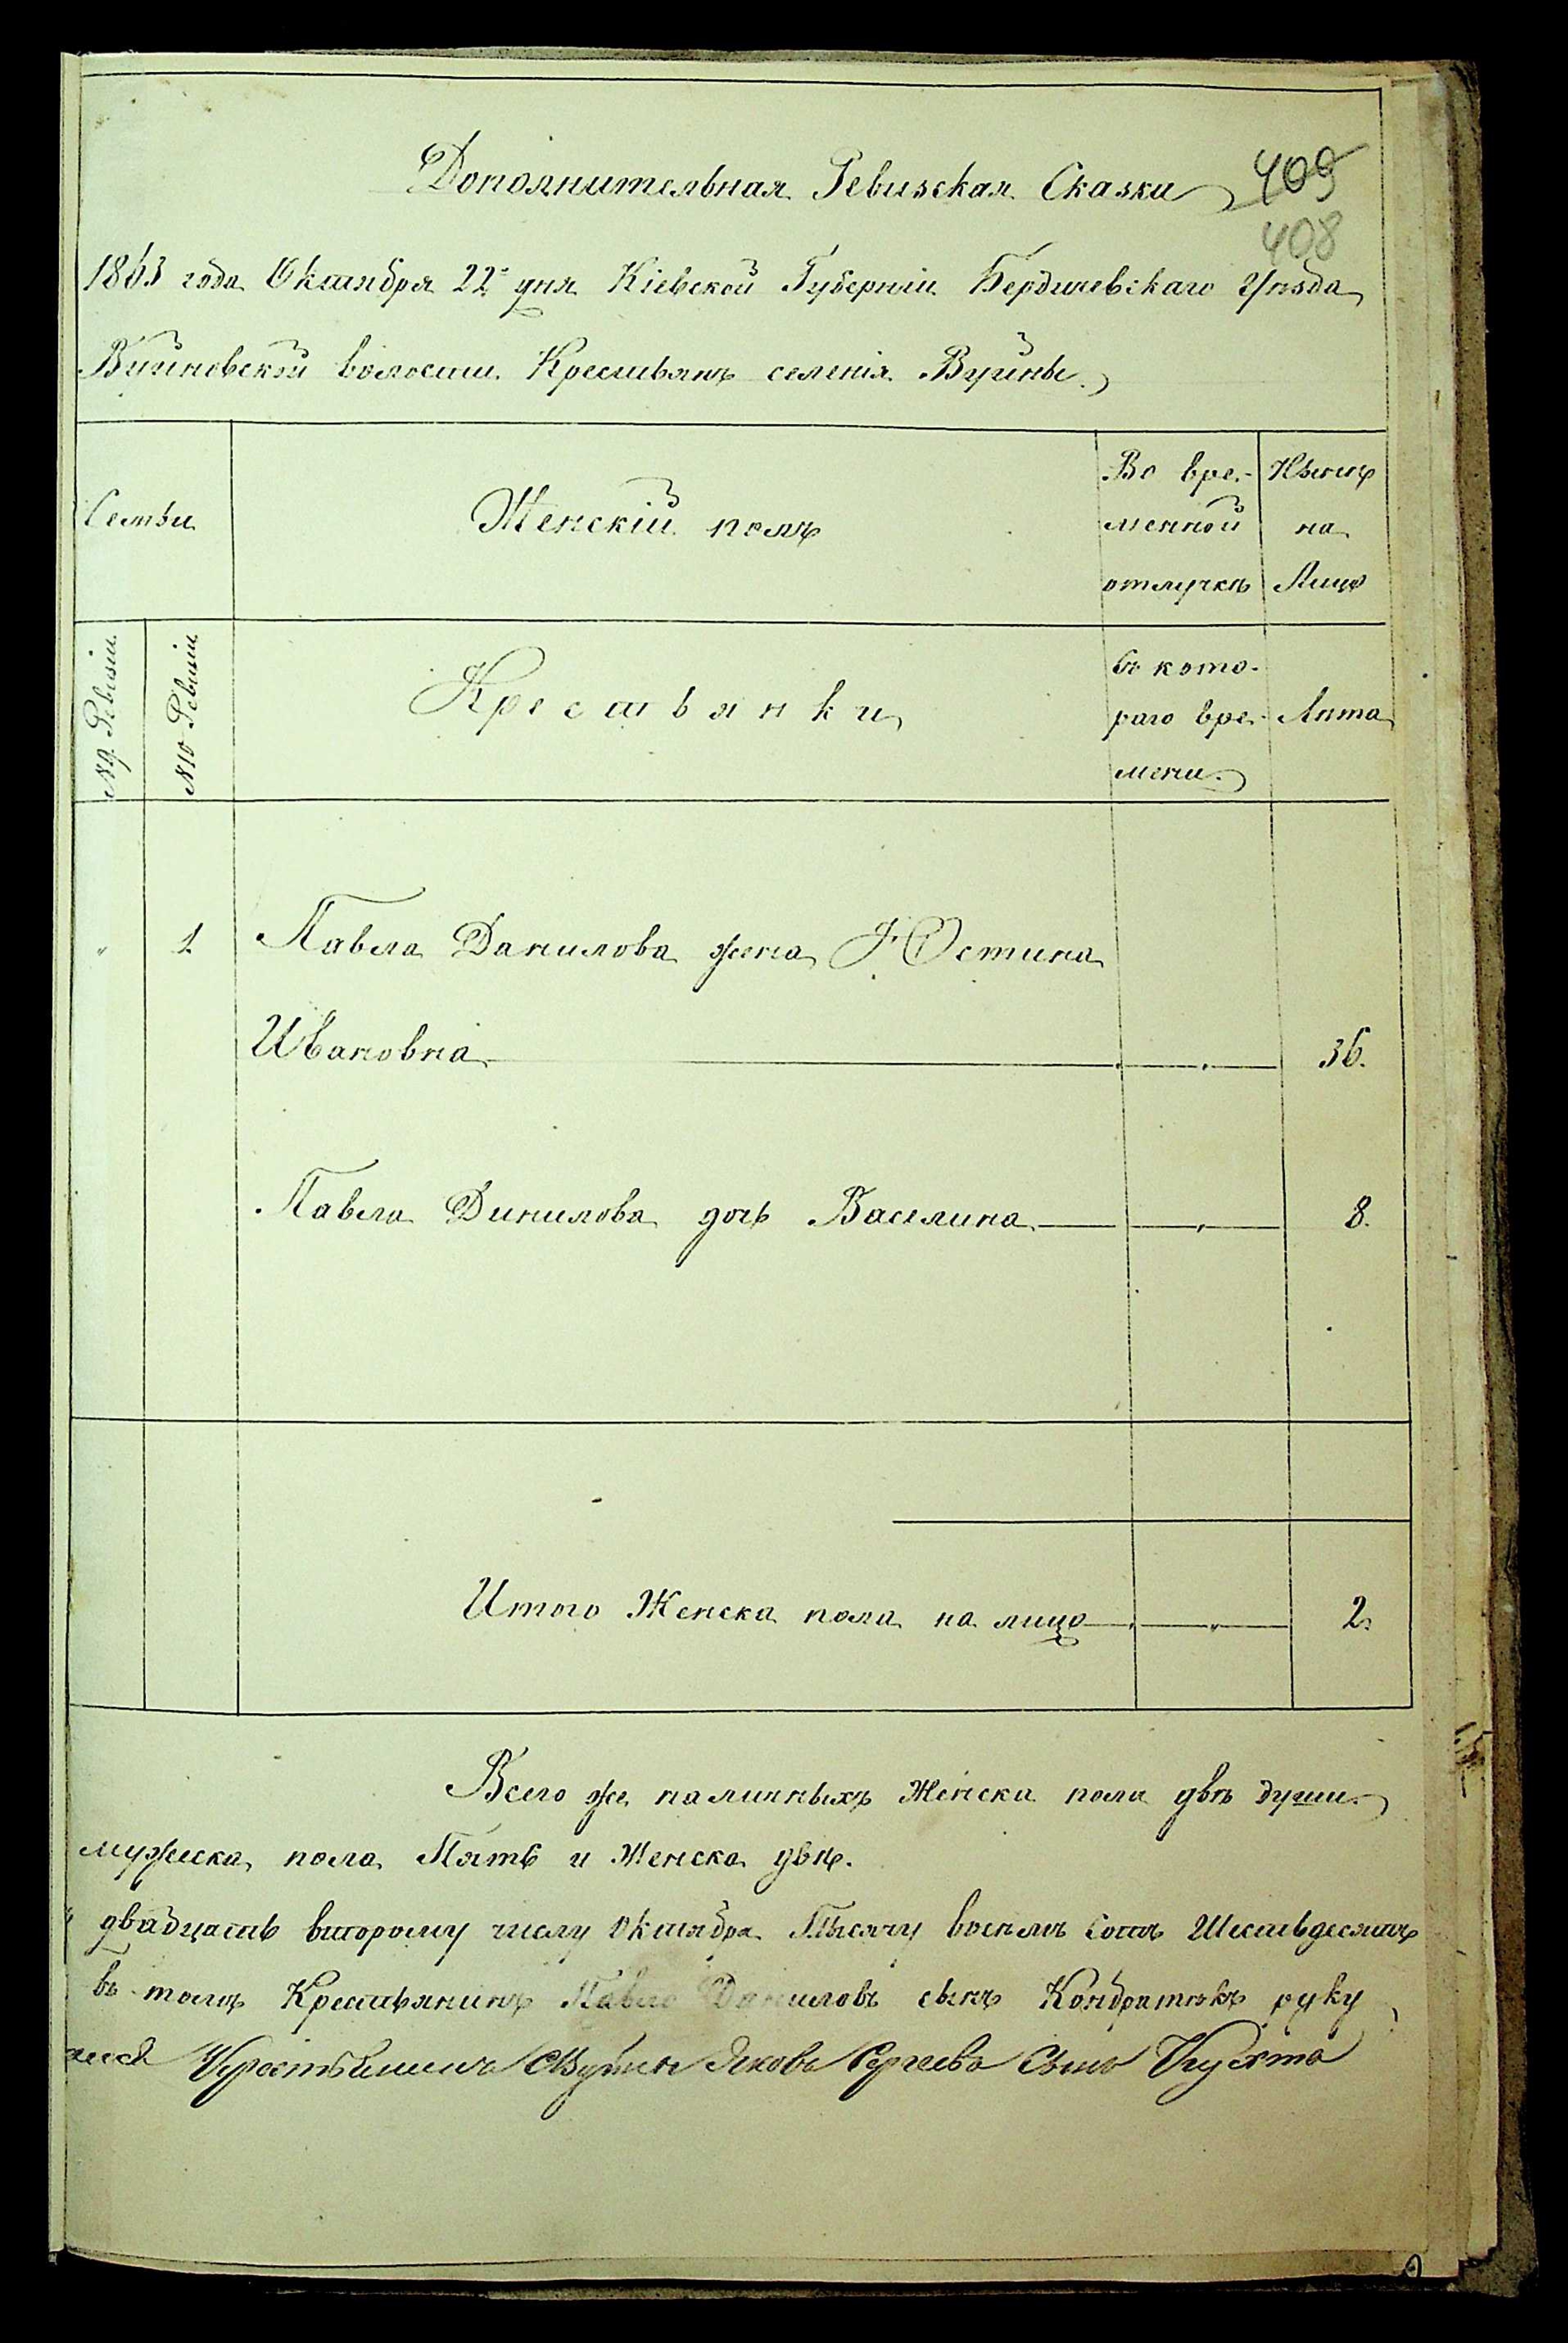 Дополнительная Ревизская Сказка
409
408
1863 года Октября 22 дня Кіевской Губерніи Бердичевскаго Уѣзда
Вуйновской волости Крестьянъ селенія Вуйны
Семьи
Женскій полъ
Во вре-
менной
отлучкѣ
Нынѣ
на
Лицо
№ 9 Ревизіи
№ 10 Ревизіи
Крестьянки
Съ кото-
раго вре-
мени
Лѣта
" 1 Павла Данилова жена Юстина
Ивановна 36.
Павла Данилова дочь Василина 8.
Итого Женска пола на лицо 2.
Всего же наличныхъ Женска пола двѣ души
мужеска пола Пять и Женска двѣ.
двадцать второму числу Октября Тысячу восемь сотъ Шестьдесятъ
въ томъ Крестьянинъ Павло Даниловъ сынъ Кондратюкъ руку
Яковъ Сергеевъ Сынъ